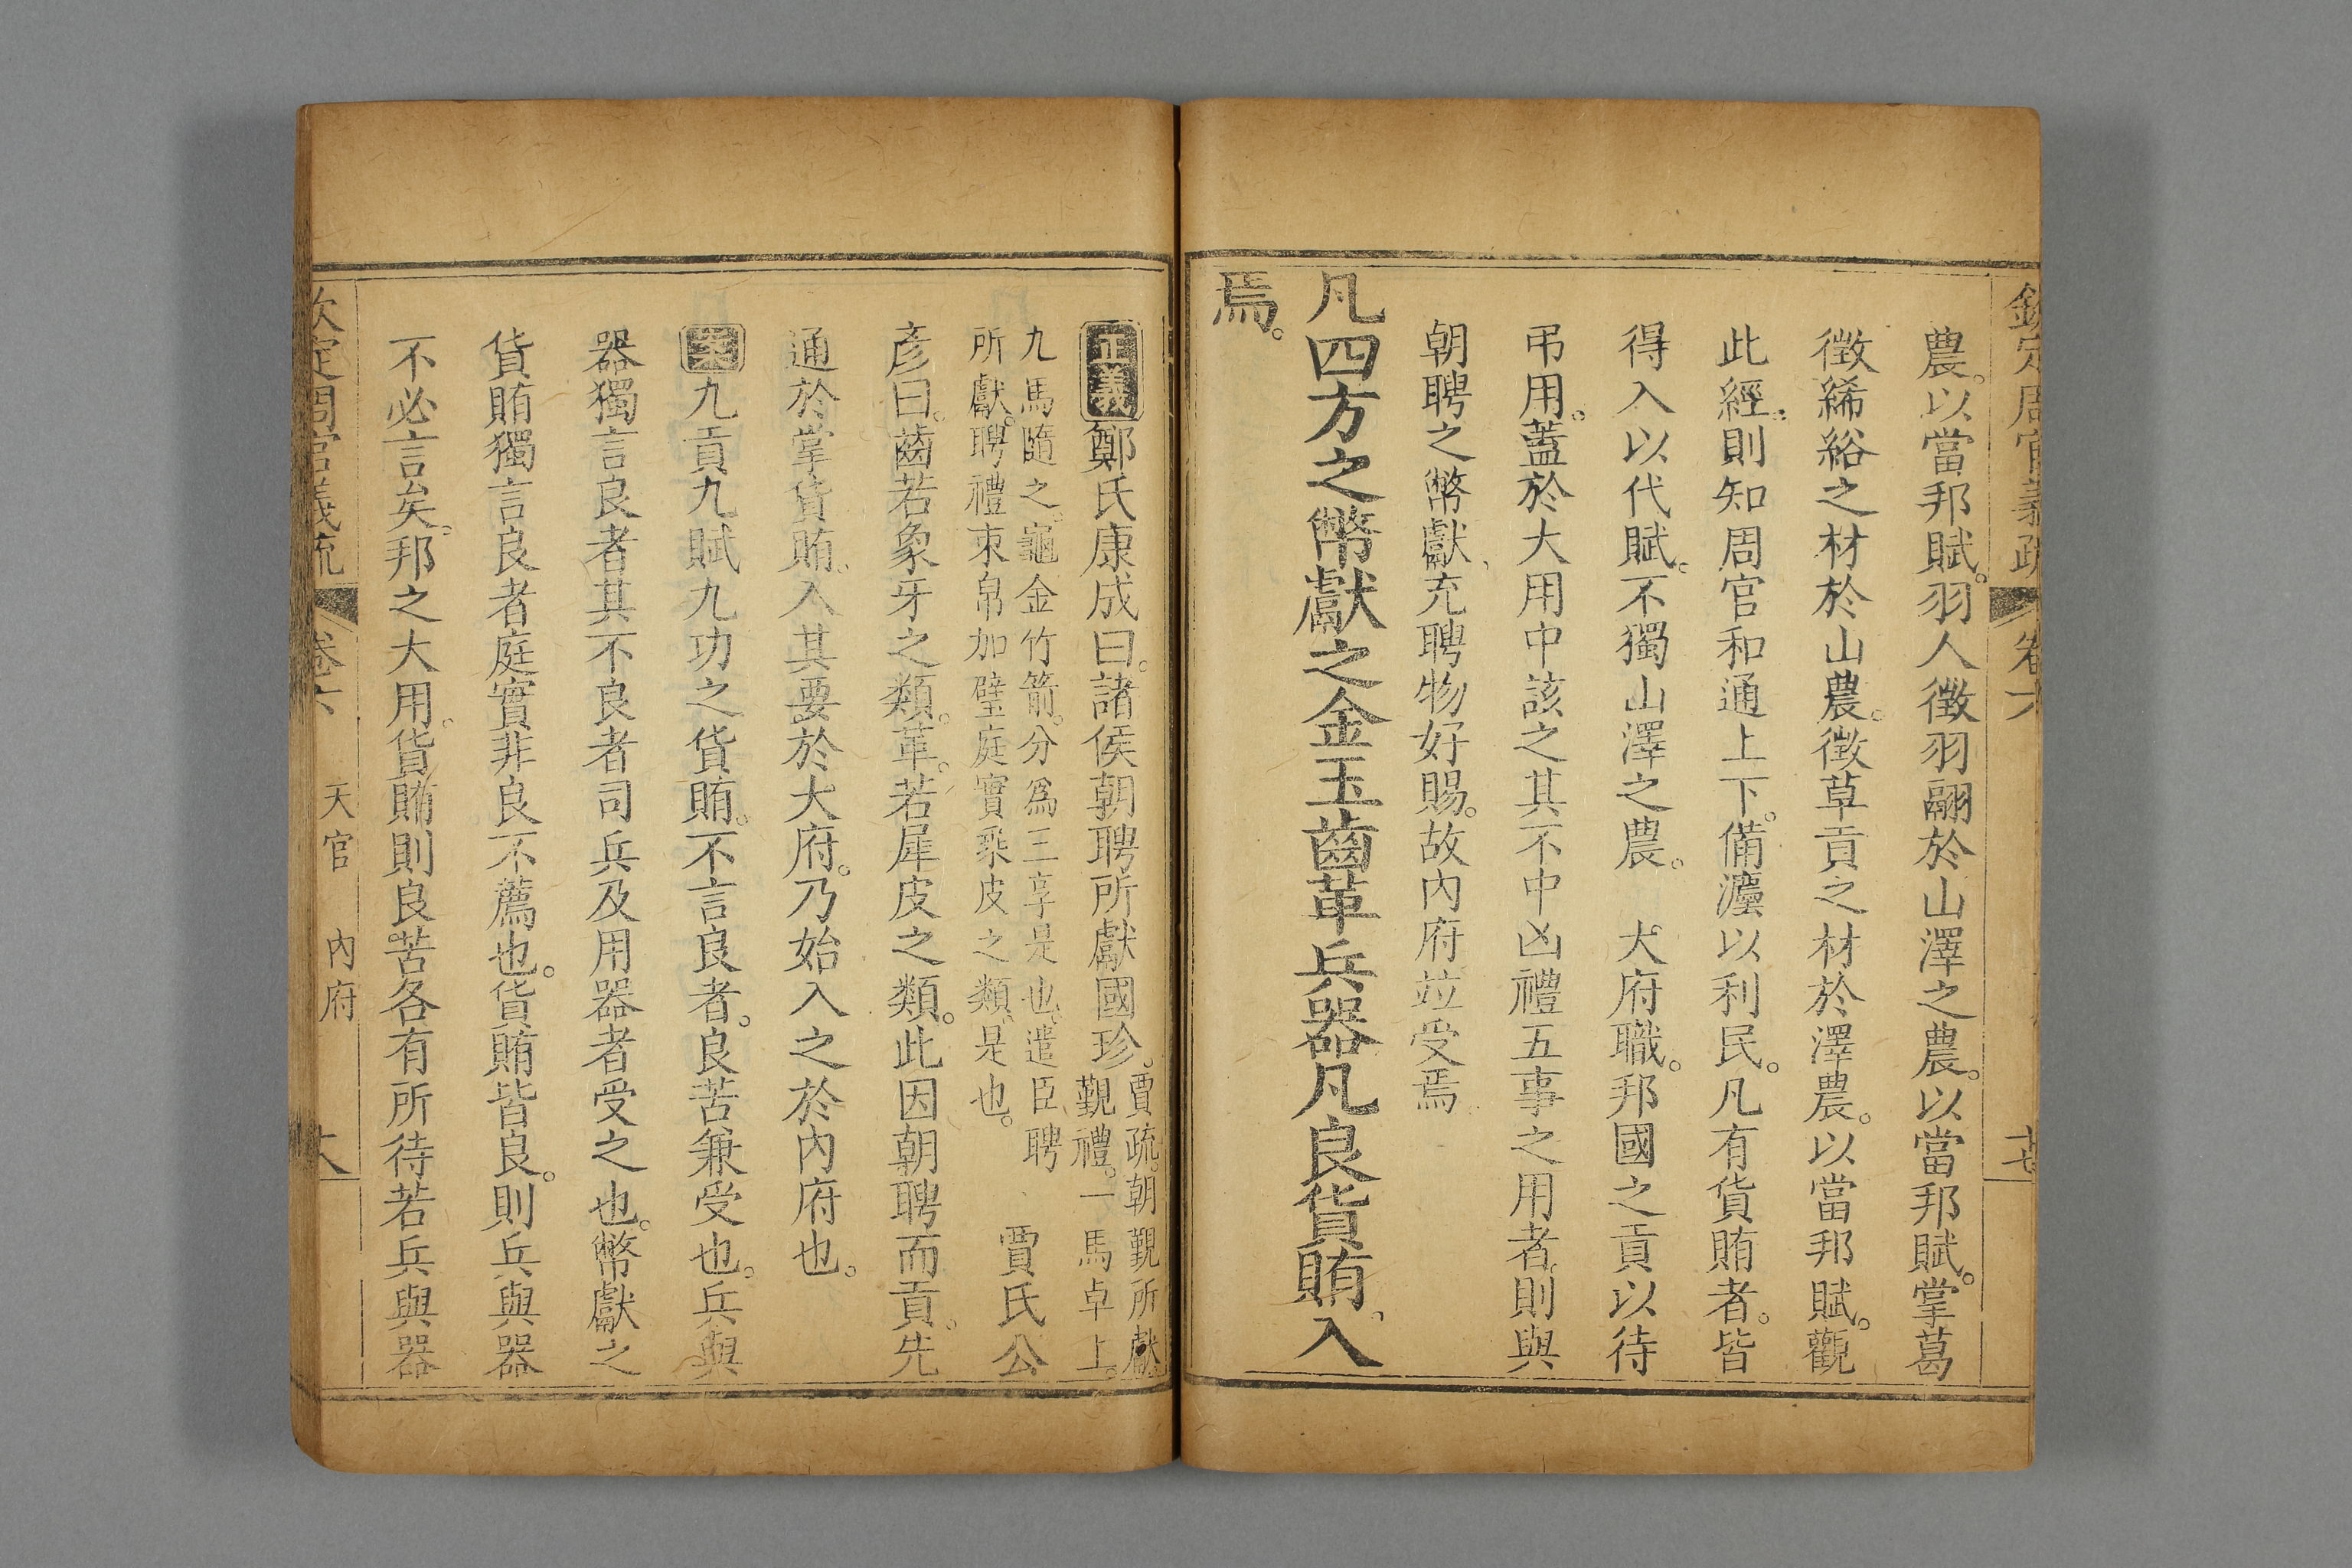 欽定周官義疏 卷六
農。以當邦賦。羽人徵羽翮於山澤之農。以當邦賦。掌葛
徵絺綌之材於山農。徵草貢之材於澤農。以當邦賦。觀
此經。則知周官和通上下。備灋以利民。凡有貨賄者。皆
得入以代賦。不獨山澤之農。 大府職。邦國之貢以待
弔用。蓋於大用中該之其不中凶禮五事之用者。則與
朝聘之幣獻、充聘物好賜。故內府竝受焉
凡四方之幣獻之金玉齒革兵器凡良貨賄、入
焉。
正義鄭氏康成曰。諸侯朝聘所獻國珍。
賈疏。朝覲所獻。
覲禮。一馬卓上。
九馬隨之。龜金竹箭。分為三享是也。遣臣聘
所獻。聘禮束帛加璧庭實乘皮之類。是也。
賈氏公
彥曰。齒若象牙之類。革。若犀皮之類。此因朝聘而貢。先
通於掌貨賄。入其要於大府。乃始入之於內府也。
案九貢九賦九功之貨賄。不言良者。良苦兼受也。兵與
器獨言良者其不良者司兵及用器者受之也。幣獻之
貨賄獨言良者庭實非良不薦也。貨賄皆良。則兵與器
不必言矣。邦之大用。貨賄則良苦各有所待若兵與器
欽定周官義疏 卷六 天官 內府